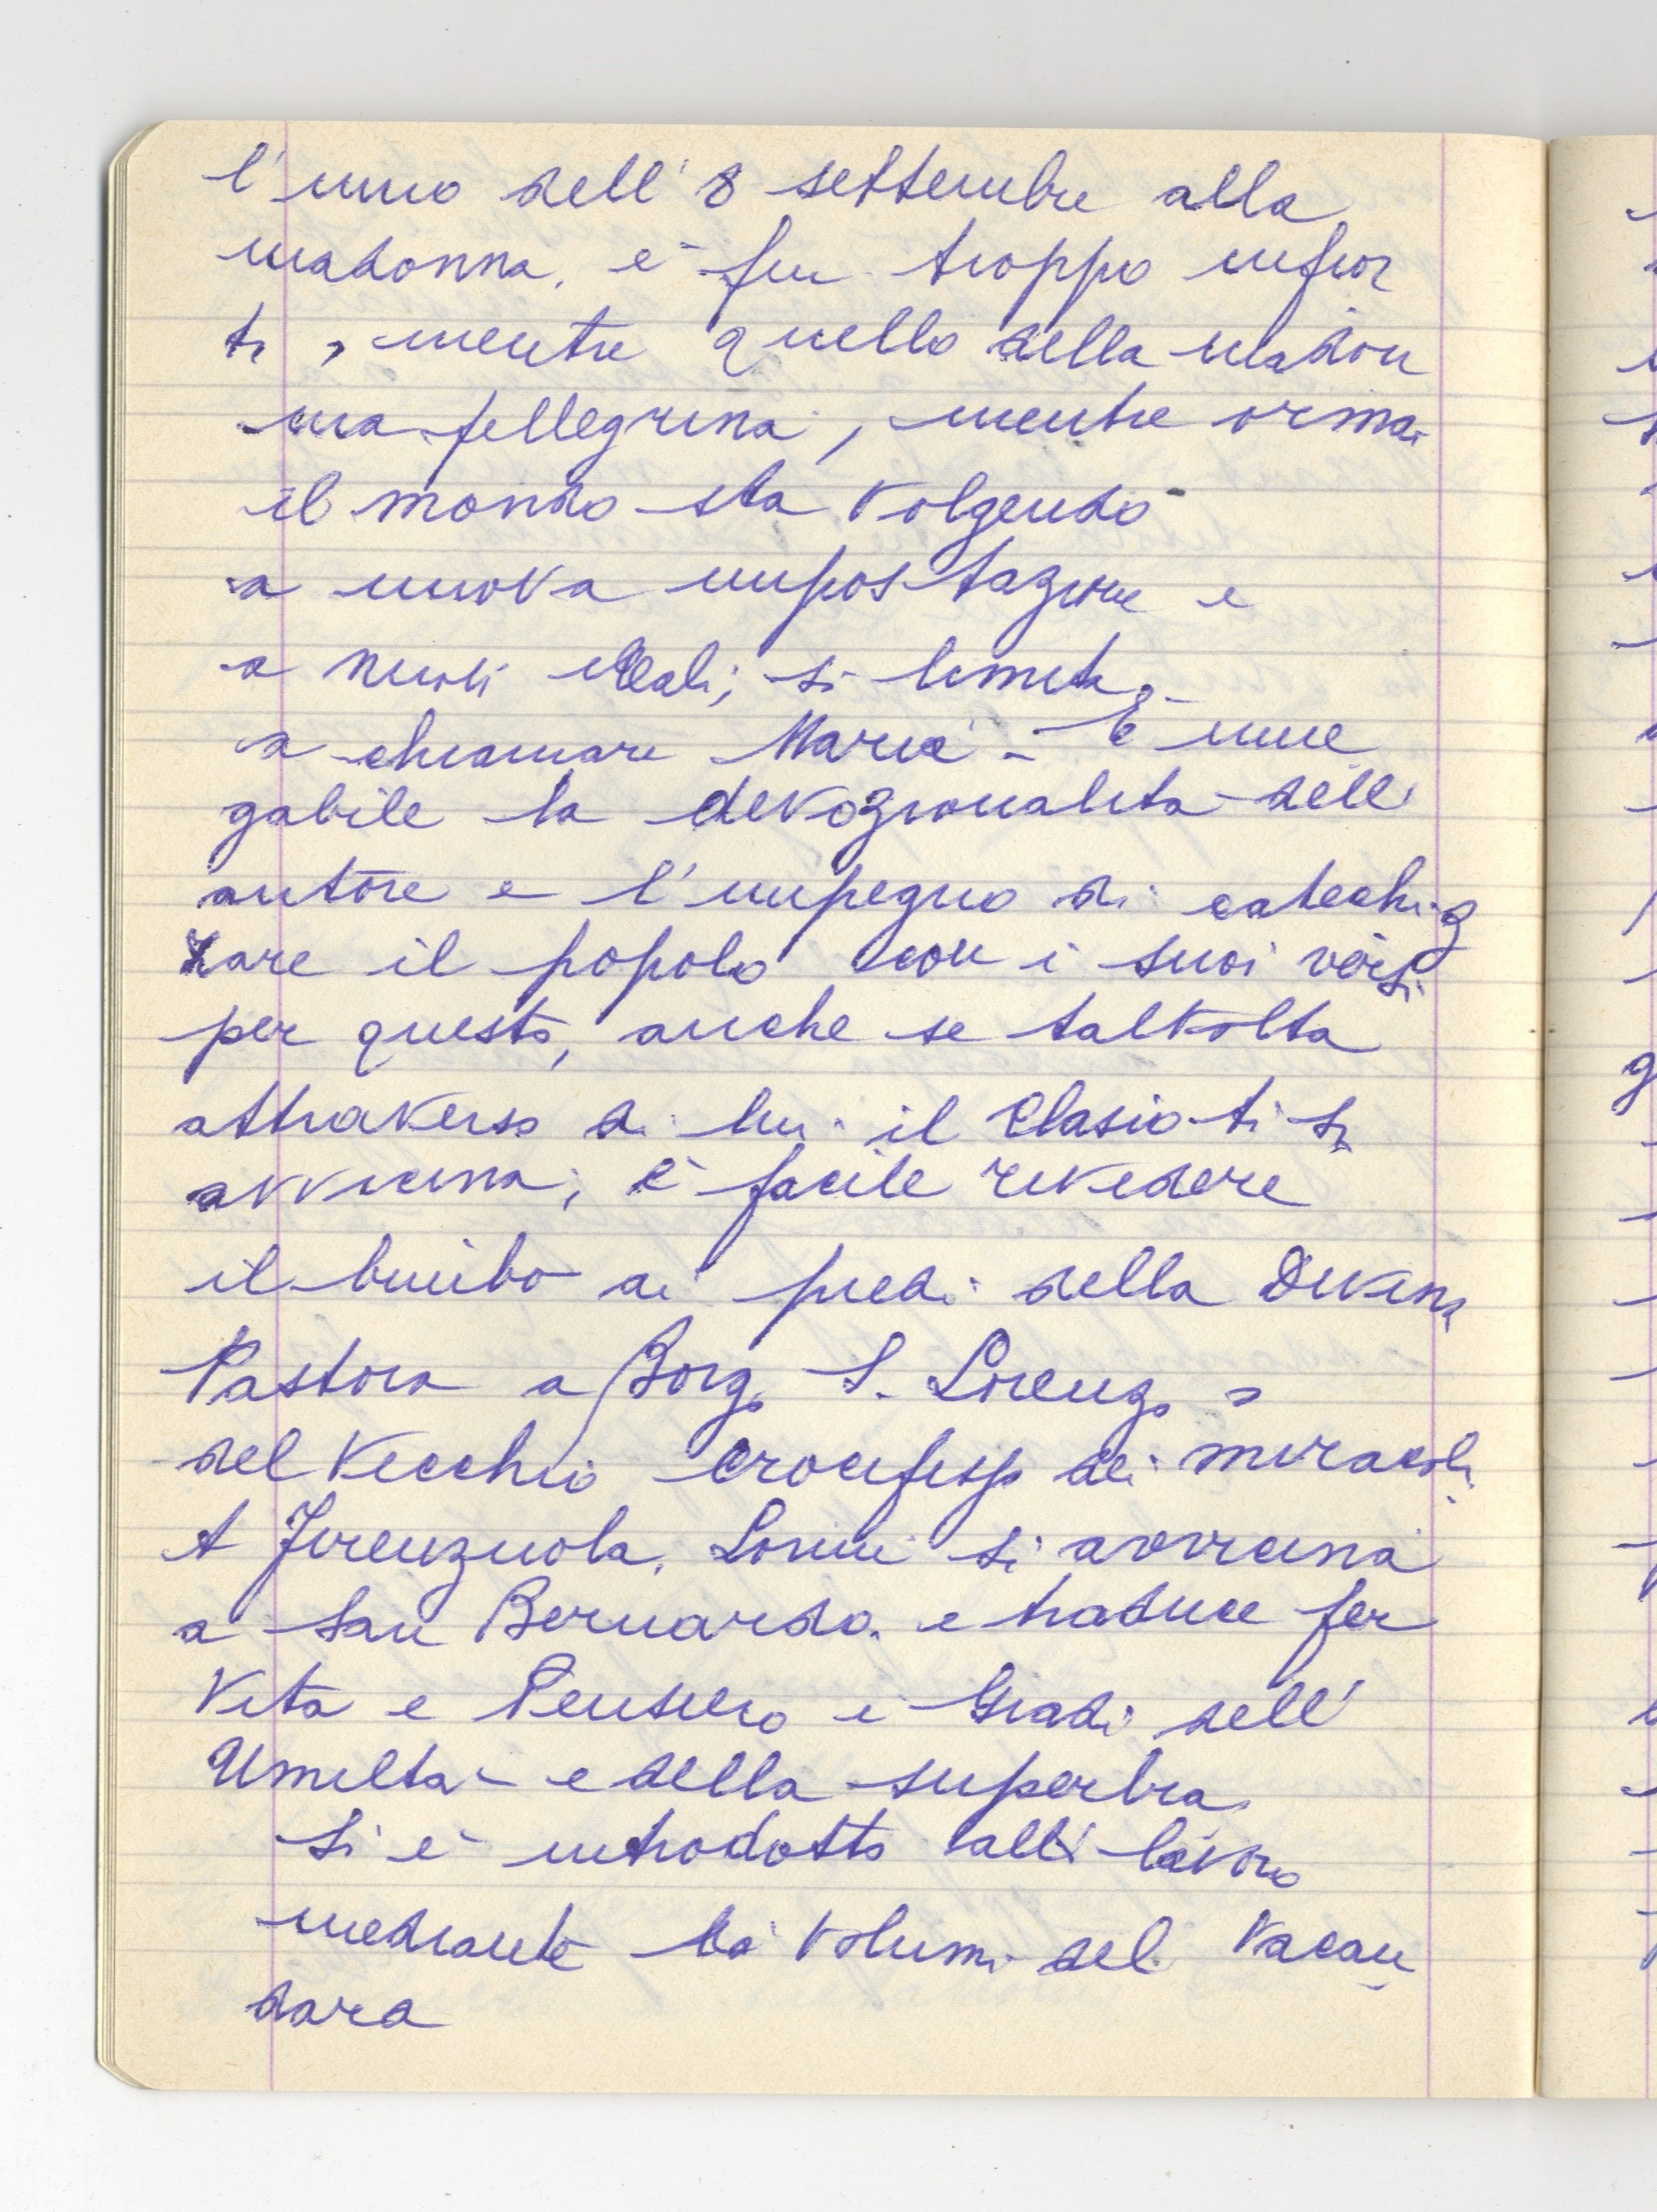 l'inno dell'8 settembre alla
madonna, è fin troppo infior
ti, mentre quello della madon
na pellegrina, mentre ormai
il mondo sta volgendo
a nuova impostazione e
a nuovi ideali, si limita
a chiamare Maria - È inne
gabile la devozionalità dell'
autore e l'impegno di catechiz
zare il popolo con i suoi versi
per questo, anche se taltvolta
attraverso di lui il Clasio ti si
avvicina, è facile rivedere
il bimbo ai piedi della Divina
Pastora a Borgo S. Lorenzo o
del Vecchio crocifisso dei miracoli
A Firenzuola. Lorini si avvicina
a San Bernardo e traduce per
Vita e Pensiero i Gradi dell'
Umiltà e della superbia
Si è introdotto all lavoro
mediante volumi del Vacan
dara